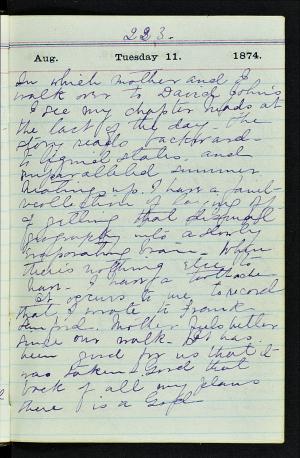 223.
Aug. Tuesday 11. 1874.
In which mother and I
walk over to David John's
I see my chapter reads at
the last of the day. The
story reads backwards
and
unparalleled summer
up. I have a faint
recollection of
of getting that
geography into a slowly
brain. When
there's nothing else to
have I have a toothache
It occurs to me to record
that I wrote to Frank
Mother feels better
since our walk. It has
been good for us that it
was taken. And that
back of all my plans
there is a God